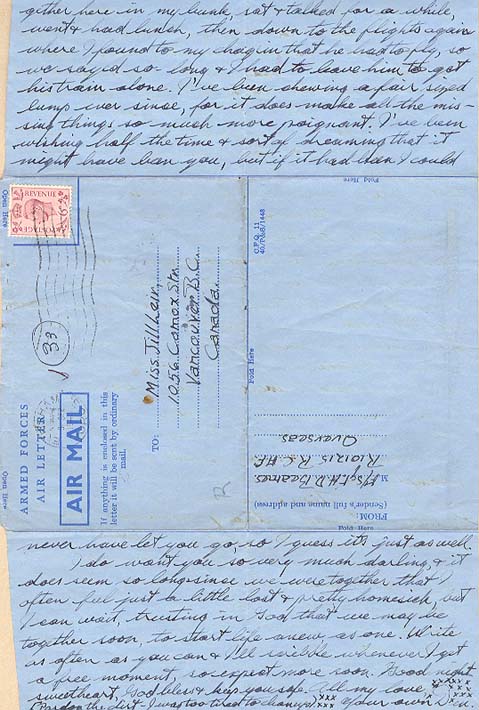 gether here in my bunk, sat & talked for a while,
went & had lunch, then down to the flights again
where I found to my chagrin that he had to fly, so
we say'd so-long & I had to leave him to get
his train alone. I've been chewing a fair sized
lump ever since, for it does make all the mis-
sing things so much more poignant. I've been
wishing half the time & sort of dreaming that it
might have been you, but if it had been I could
Open Here
REVENUE
POSTAGE
6D
33
ARMED FORCES
AIR LETTER
AIR MAIL
If anything is enclosed in this
letter it will be sent by ordinary
mail.
TO:
Miss. Jill
1056. Comox Str.
Vancouver B.C.
Canada.
Open Here
Fold Here
C.F.Q. 11
Fold Here
FROM:
(Sender's full name and address)
H. D.
Overseas
Fold Here
never have let you go, so I guess it's just as well.
I do want you so very much darling, & it
does seem so long since we were together that I
often feel just a little lost & pretty homesick, but
I can wait, trusting in God that we may be
together soon, to start life anew as one. Write
as often as you can & I'll scribble whenever I get
a free moment, so expect more soon. Good night
sweetheart, God bless & keep you safe. All my love xxx
Pardon the dirt, I was too tired to change. xxx your own